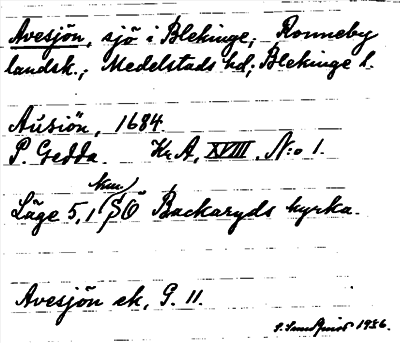 Avesjön, sjö i Blekinge, Ronneby
landsk., Medelstads hd, Blekinge l.
Ausiön, 1684.
P. Gedda. Kr. A, XVIII. N:o 1.
Läge 5,1 km SÖ Backaryds kyrka.
Avesjön ek, G. 11.
1936.